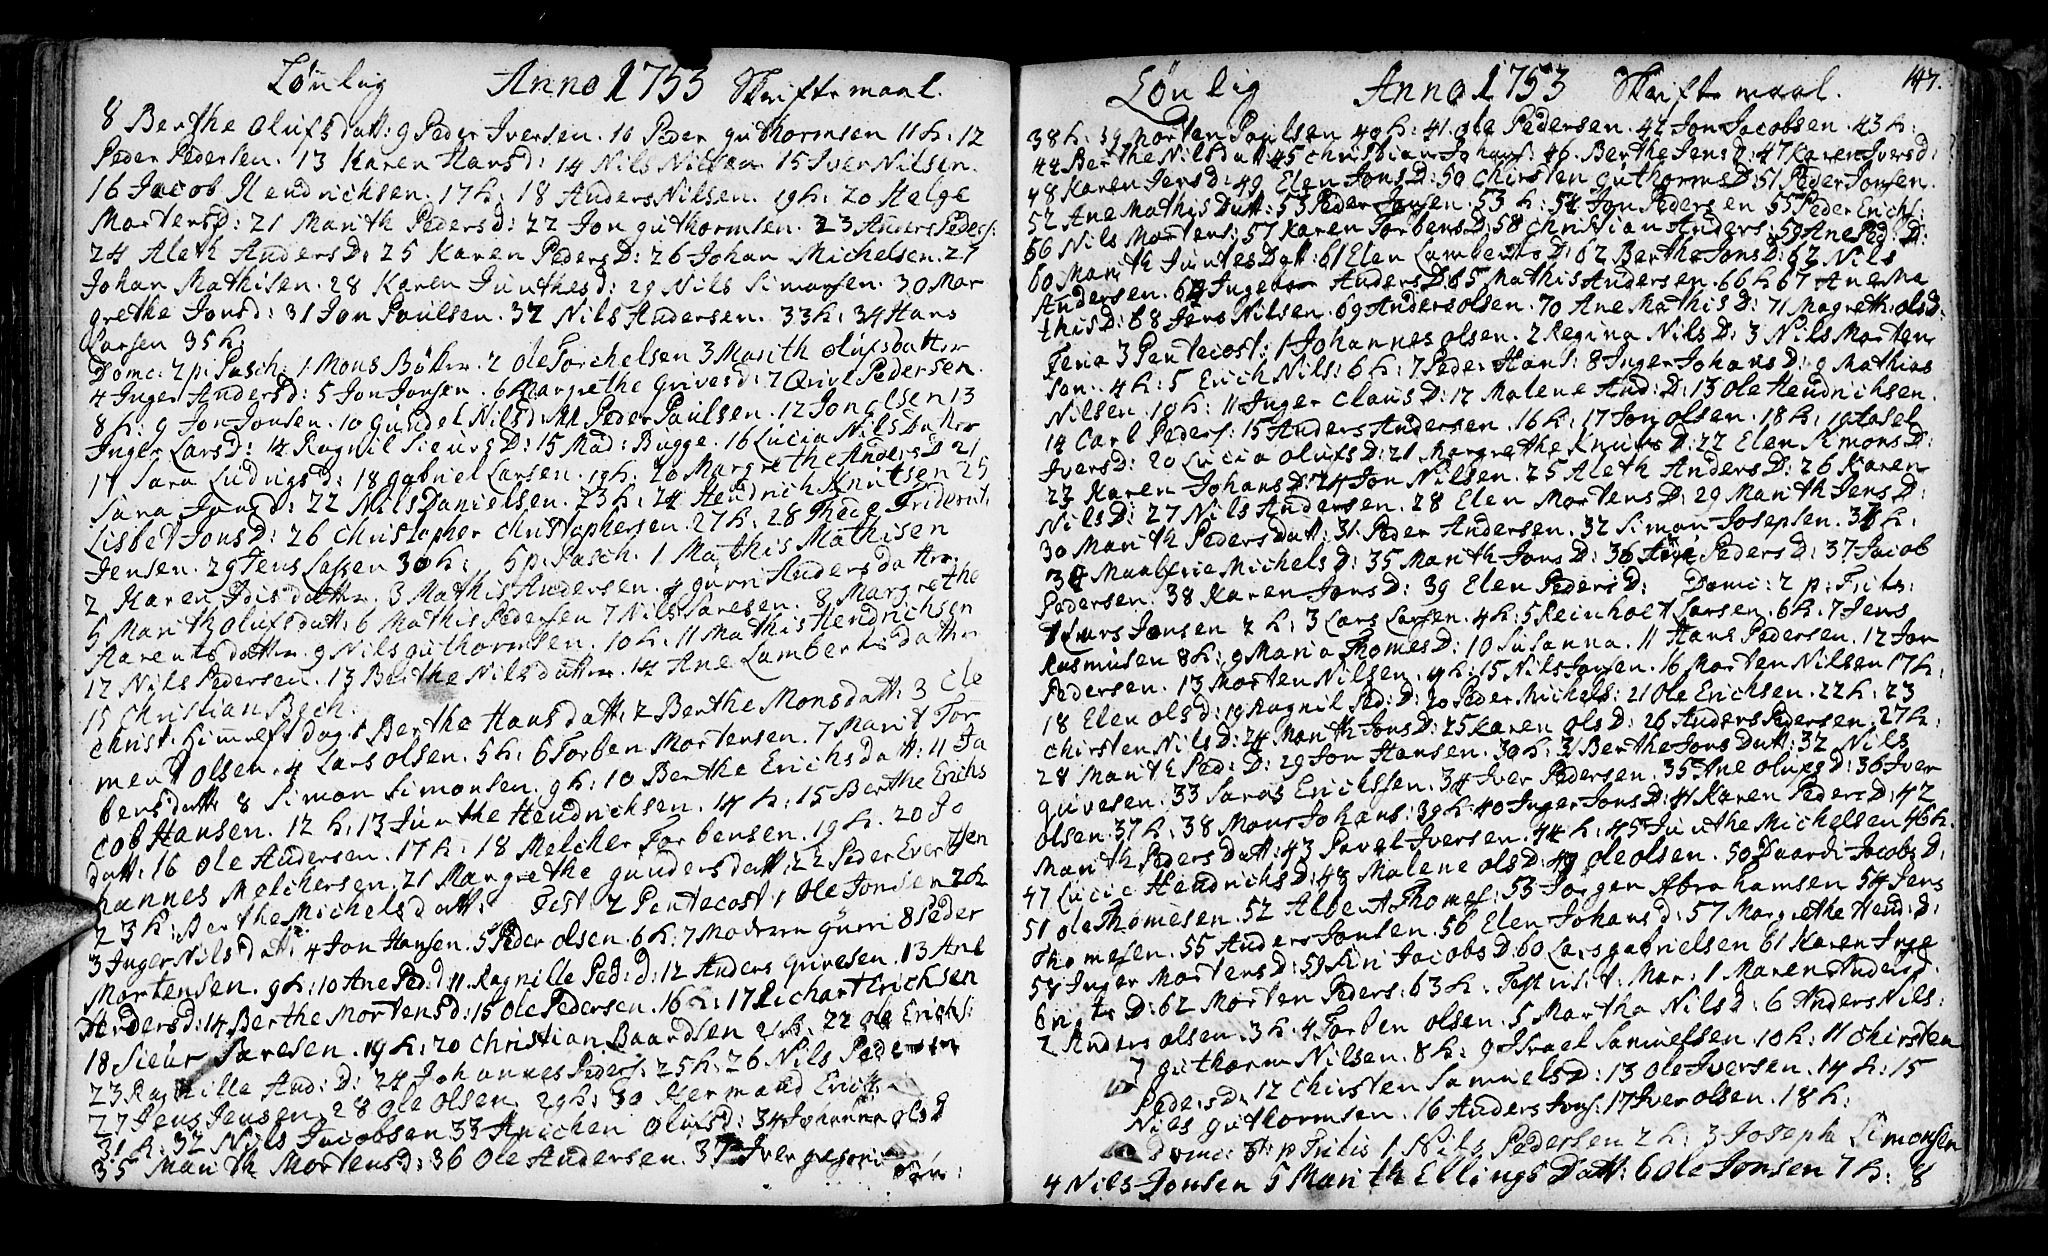 Lönlig Anno 1753 Skrifte maal.
8 Berthe Olufsdatt: 9 Peder Iversen. 10 Peder guthormsen 11 h: 12
Peder Pedersen. 13 Karen Hansd: 14 Nils Nilsen 15 Iver Nilsen.
16 Jacob Hendrichsen. 17 h: 18 Anders Nilsen. 19 h: 20 Helge
Mortensd: 21 Marith Pedersd: 22 Jon guthormsen. 23 Anders Peders:
24 Aleth Anders D: 25 Karen Peders D: 26 Johan Michelsen. 27
Johan Mathisen. 28 Karen Junthesd: 29 Nils Simonsen. 30 Mar
grethe Jonsd: 31 Jon Paulsen. 32 Nils Andersen. 33 h: 34 Hans
Larsen 35 h:
Domc: 2 p: Pasch: 1 Mons Böhn. 2 Ole Torchelsen 3 Marith Olufsdatter
4 Inger Andersd: 5 Jon Jonsen. 6 Margrethe Grivesd: 7 Qrive Pedersen.
8 h: 9 Jon Jonsen. 10 Gundel Nilsd: 11 Peder Paulsen. 12 Jon Olsen 13
Inger Larsd: 14 Ragnil Sieurs D: 15 Mad: Bugge. 16 Lucia Nils Datter
17 Sara Ludvigsd: 18 gabriel Larsen. 19 h: 20 Margrethe Anders D 21
Sara Jonsd: 22 Nils Danielsen. 23 h: 24 Hendrich Knutsen 25
Lisbet Jons D: 26 Christopher Christophersen. 27 h: 28 Thece Friderich
Jensen. 29 Jens Lassen 30 h: 5 p: Pasch. 1 Mathis Mathisen
2 Karen Joisdatter. 3 Mathis Andersen. 4 gurri Andersdatter
5 Marith Olufsdatt: 6 Mathis Pedersen 7 Nils Saresen. 8 Margrethe
Karentsdatter. 9 Nils guthormsen. 10 h: 11 Mathis Hendrichsen
12 Nils Pedersen. 13 Berthe Nilsdatter. 14 Ane Lambertsdatter
15 Christian Bech.
Christ: Himelf: dag 1 Berthe Hansdatt: 2 Berthe Monsdatt: 3 Cle
ment Olsen. 4 Lars Olsen. 5 h: 6 Torben Mortensen. 7 Marit Tor
bersdatt: 8 Simon Simonsen. 9 h: 10 Berthe Erichsdatt: 11 Ja
cob Hansen. 12 h: 13 Junthe Hendrichsen. 14 h: 15 Berthe Erichs
datt: 16 Ole Andersen. 17 h: 18 Melcher Torbensen. 19 h: 20 Jo
hannes Melchersen. 21 Margrethe gundersdatt: 22 Peder Evertsen
23 h: Berthe Michelsdatt: Fest: 2 Pentecost: 1 Ole Jonsen 2 h
3 Inger Nilsdatt: 4 Jon Hansen. 5 Peder Olsen. 6 h: 7 Moderen gurri 8 Peder
Mortensen. 9 h: 10 Ane Ped: d: 11 Ragnille Ped: d: 12 Anders Grivesen. 13 Ane
Andersd: 14 Berthe Mortensd: 15 Ole Pedersen. 16 h: 17 Richart Erichsen
18 Sieur Saresen. 19 h: 20 Christian Baardsen 21 h. 22 Ole Erichs:
23 Ragnille And: D: 24 Johannes Peders: 25 h: 26 Nils Pedersen
27 Jens Jensen. 28 Ole Olsen. 29 h: 30 Hermand Erichs
31 h: 32 Nils Jacobsen. 33 Anichen Olufsd: 34 Johanna Ols D
35 Marith Mortensd: 36 Ole Andersen. 37 Iver
Lönlig Anno 1753 Skrifte maal. 147.
38 h: 39 Morten Paulsen 40 h: 41. Ole Pedersen. 42 Jon Jacobsen. 43 h:
44 Berthe Nilsdatt: 45 Christian Johans: 46. Berthe Jens D: 47 Karen Iversd:
48 Karen Jensd: 49 Elen Jons D: 50 Chirsten guthorms D: 51 Peder Jonsen.
52 Ane Mathis Datt: 53 Peder Jonsen. 53 h: 54 Jon Pedersen 55 Peder Erichs:
56 Nils Mortens: 57 Karen Torbens D: 58 Christian Anders: 59 Ane Ped: D:
60 Marith Juntes Datt: 61 Elen Lamberts D: 62 Berthe Jons D: 62 Nils
Andersen. 64 Ingebor Anders D: 65 Mathis Andersen. 66 h 67 Ane Ma
this D: 68 Jens Nilsen. 69 Anders Olsen. 70 Ane Mathis D: 71 Magreth: Ols D:
Feria 3 Pentecost: 1 Johannes Olsen. 2 Regina Nils D: 3 Nils Morten
son. 4 h: 5 Erich Nils: 6 h: 7 Peder Hans: 8 Inger Johans D: 9 Mathias
Nilsen. 10 h: 11 Inger Claus D: 12 Malene And: D: 13 Ole Hendrichsen.
14 Carl Peders: 15 Anders Andersen. 16 h: 17 Jon Olsen. 18 h: 19 Assel
Ivers D: 20 Lucia Olufs D: 21 Margrethe Knuts D: 22 Elen Simons D:
23 Karen Johans D: 24 Jon Nilsen. 25 Aleth Anders D: 26 Karen
Nils D: 27 Nils Andersen. 28 Elen Mortens D: 29 Marith Jens D:
30 Marith Pedersdatt: 31 Peder Andersen. 32 Simon Josepsen. 33 h:
34 Maalfrie Michels D: 35 Marith Jons D: 36 Peders D: 37 Jacob
Pedersen. 38 Karen Jons D: 39 Elen Peders D: Domc: 2 p: Trit:
1 Lars Jonsen 2 h: 3 Lars Larsen. 4 h: 5 Reinholt Larsen. 6 h: 7 Jens
Rasmusen 8 h: 9 Maria Thomes D: 10 Susanna. 11 Hans Pedersen. 12 Jon
Pedersen. 13 Morten Nilsen. 14 h: 15 Nils Jonsen. 16 Morten Nilsen 17 h:
18 Elen Olsd: 19 Ragnil Ped: D: 20 Peder Michels: 21 Ole Erichsen. 22 h: 23
Chirsten Nils D: 24 Marith Jons D: 25 Karen Ols D: 26 Anders Pedersen. 27 h:
28 Marith Ped: D: 29 Jon Hansen. 30 h: 31 Berthe Jons Datt: 32 Nils
Grivesen. 33 Saras Erichssen. 34 Iver Pedersen. 35 Ane Olufsd: 36 Iver
Olsen. 37 h: 38 Mons Johans: 39 h: 40 Inger Jons D: 41 Karen Peders D: 42
Marith Peders Datt: 43 Pavel Iversen. 44 h: 45 Junthe Michelsen 46 h:
47 Lucie Hendrichs D: 48 Malene Ols D: 49 Ole Olsen. 50 Baardi Jacobs D:
51 Ole Thomesen. 52 Albert Thomes: 53 Jörgen Abrahamsen 54 Jens
Thomesen. 55 Anders Jonsen. 56 Elen Johans D: 57 Margrethe Hend: D:
58 Inger Mortens D: 59 Siri Jacobs D: 60 Lars gabrielsen 61 Karen Inge
brits D: 62 Morten Peders: 63 h: Fest: visit: Mar: 1 Maren Andersd:
2 Anders Olsen. 3 h. 4 Torben Olsen. 5 Martha Nils D: 6 Anders Nils:
7 guthorm Nilsen. 8 h: 9 Israel Samuelsen. 10 h: 11 Chirsten
Peders D: 12 Chirsten Samuels D: 13 Ole Iversen. 14 h: 15
Nils guthormsen. 16 Anders Jons: 17 Iver Olsen. 18 h:
Domc: p Tritis 1 Nils Pedersen 2 h: 3 Joseph Simonsen
4 Nils Jonsen 5 Marith Ellings Datt: 6 Ole Jonsen 7 h: 8